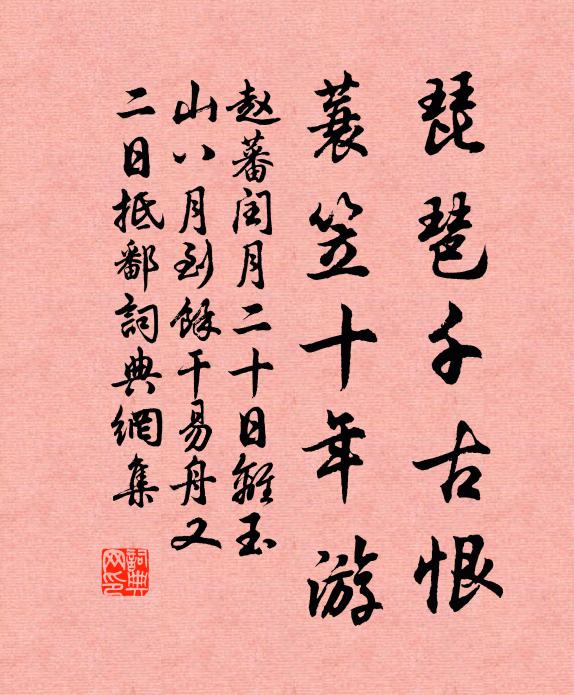 琵琶千古恨
蓑笠十年游
赵蕃闰月二十日離玉
山八月到餘干易舟又
二日抵鄱詞典網集
詞典
网印